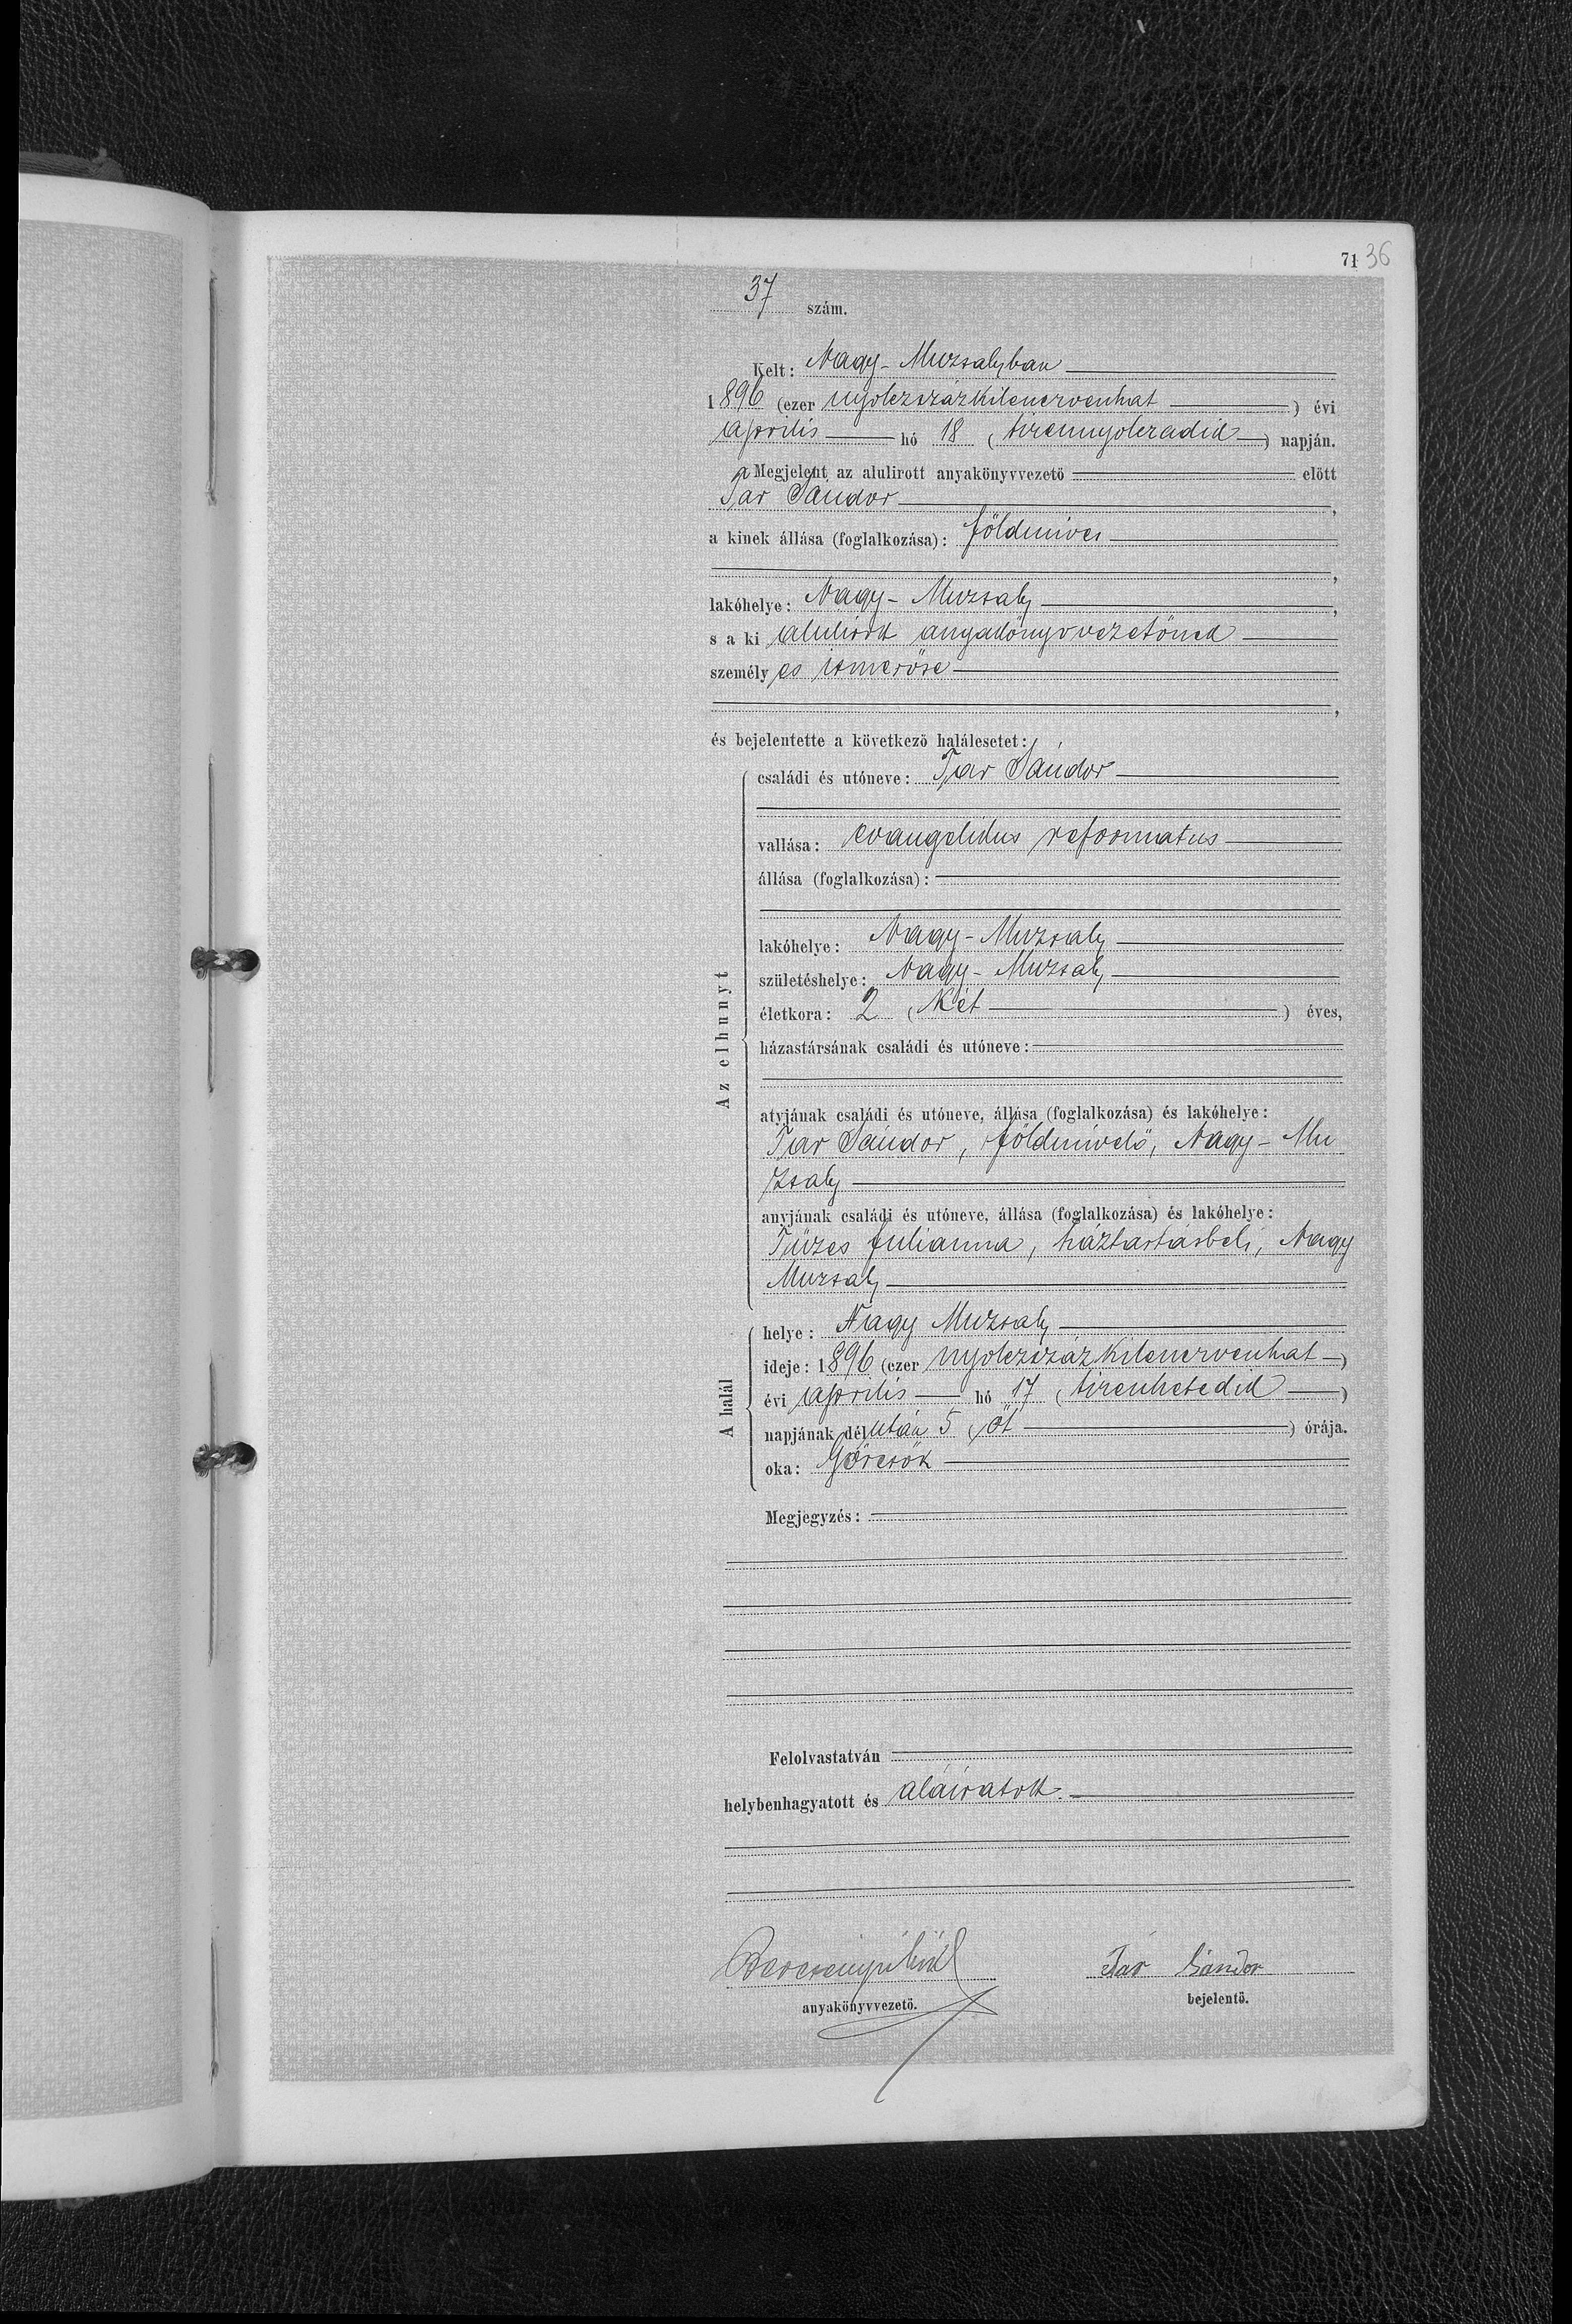 71 36
37 szám.
Kelt: Nagy-Muzsalyban
1896 (ezer nyolczszázkilenczvenhat) évi
április hó 18 (tizennyolczadik) napján.
Megjelent az alulirott anyakönyvvezető előtt
Tar Sándor,
a kinek állása (foglalkozása): földmives
,
lakóhelye: Nagy-Muzsaly,
s a ki alulirott anyakönyvvezetőnek
személyes ismerőse
,
és bejelentette a következő halálesetet:
Az elhunyt
családi és utóneve: Tar Sándor
vallása: evangelikus reformatus
állása (foglalkozása):
lakóhelye: Nagy-Muzsaly
születéshelye: Nagy-Muzsaly
életkora: 2 (két) éves,
házastársának családi és utóneve:
atyjának családi és utóneve, állása (foglalkozása) és lakóhelye:
Tar Sándor, földmivelő, Nagy-Mu
zsaly
anyjának családi és utóneve, állása (foglalkozása) és lakóhelye:
Tüzes Julianna, háztartásbeli, Nagy
Muzsaly
A halál
helye: Nagy Muzsaly
ideje: 1896 (ezer nyolczszázkilenczvenhat)
évi április hó 17 (tizenhetedik)
napjának délután 5 (öt) órája.
oka: Görcsök
Megjegyzés:
Felolvastatván
helybenhagyatott és aláiratott.
Tár Sándor
anyakönyvvezető. bejelentő.